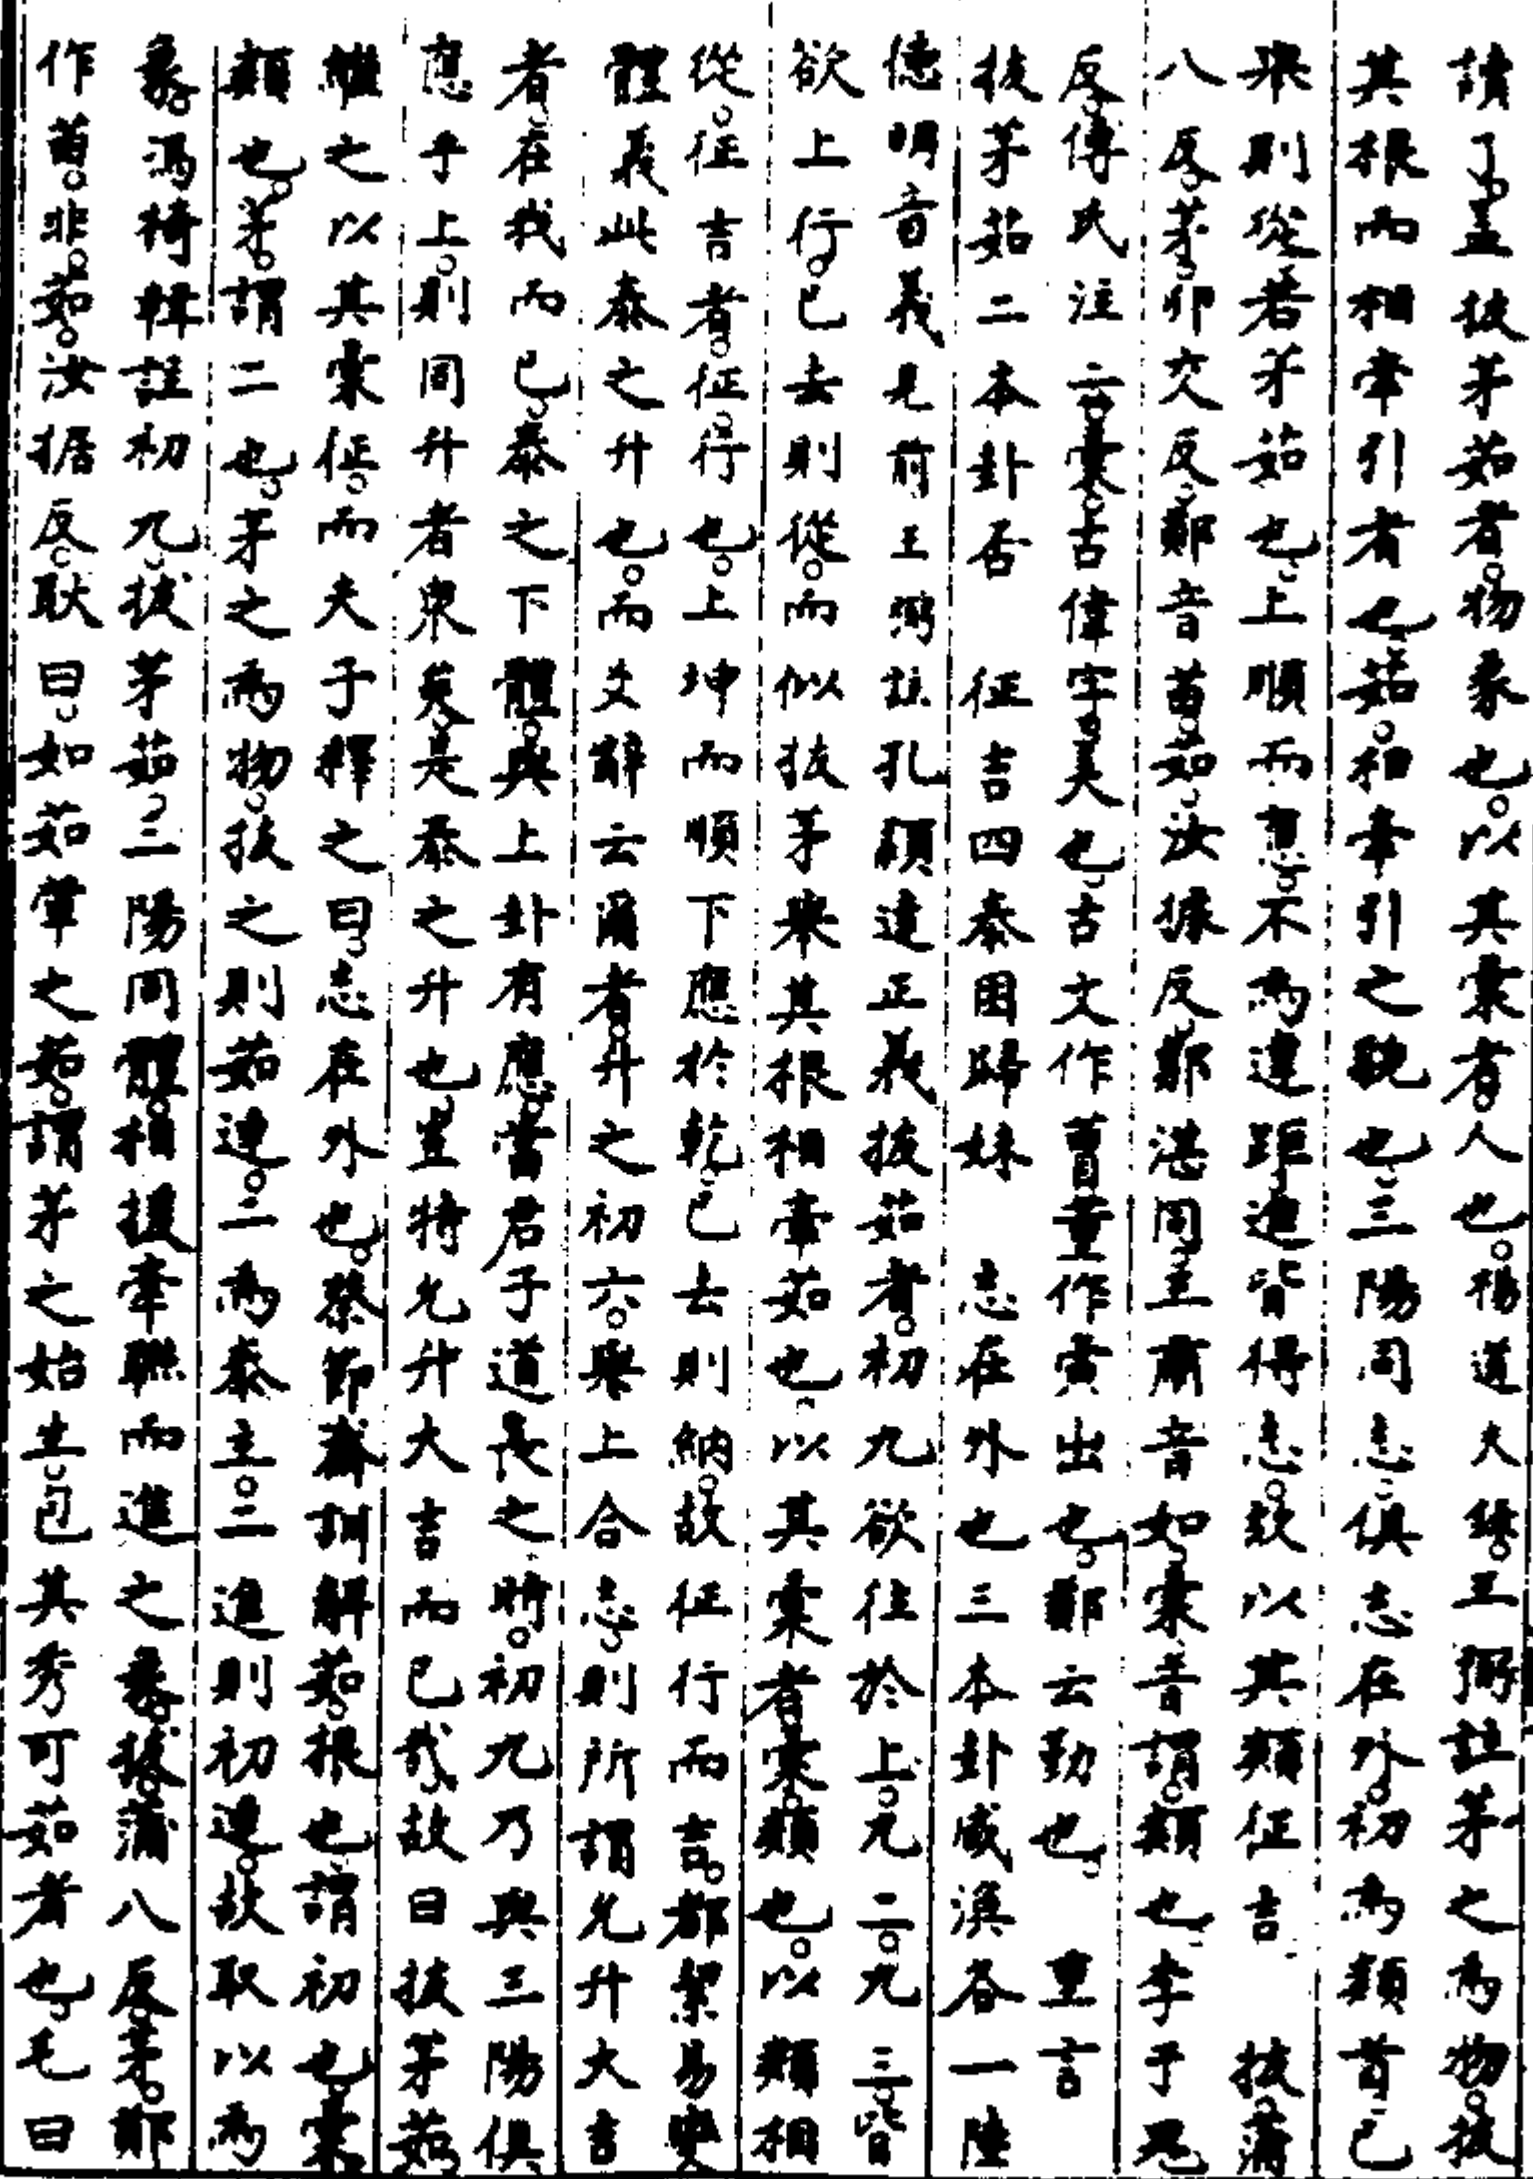 讀了盖拔茅茹者物象也以其彚者人也楊道夫錄王弼註茅之為物拔
其根而相牽引者也茹相牽引之貌也三陽同志俱志在外初為類首已
舉則從若茅茹也上順而應不為違距進皆得志故以其類征吉 拔蒲
八反茅卯交反鄭音苗茹汝據反鄭湛同王肅音如彚音謂類也李于鬼
反傅氏注云彚古偉字美也古文作曹董作夤出也鄭云勤也 重言
拔茅茹二本卦否 征吉四泰困歸妹 志在外也三本卦咸渙各一陸
德明音義見前王弼註孔穎達正義拔茹者初九欲往於上九二九三皆
欲上行已去則從而似拔茅舉其根相牽茹也以其彚者彚類也以類相
從征吉者征行也上坤而順下應於乾已去則納故征行而吉都絜易變
體義此泰之升也而爻辭云爾者升之初六與上合志則所謂允升大吉
者在我而已泰之下體與上卦有應當君子道長之時初九乃與三陽俱
應乎上則同升者衆矣是泰之升也豈特允升大吉而已哉故曰拔茅茹
雖之以其彚征而夫子釋之曰志在外也蔡節齋訓解茹根也謂初也彚
類也茅謂二也茅之為物拔之則茹連二為泰主二進則初連故取以為
象馮椅輯註初九拔茅茹三陽同體相援牽聯而進之象拔蒲八反茅鄭
作苗非茹汝据反耿曰如茹葷之茹謂茅之始生包其秀可茹者也毛曰